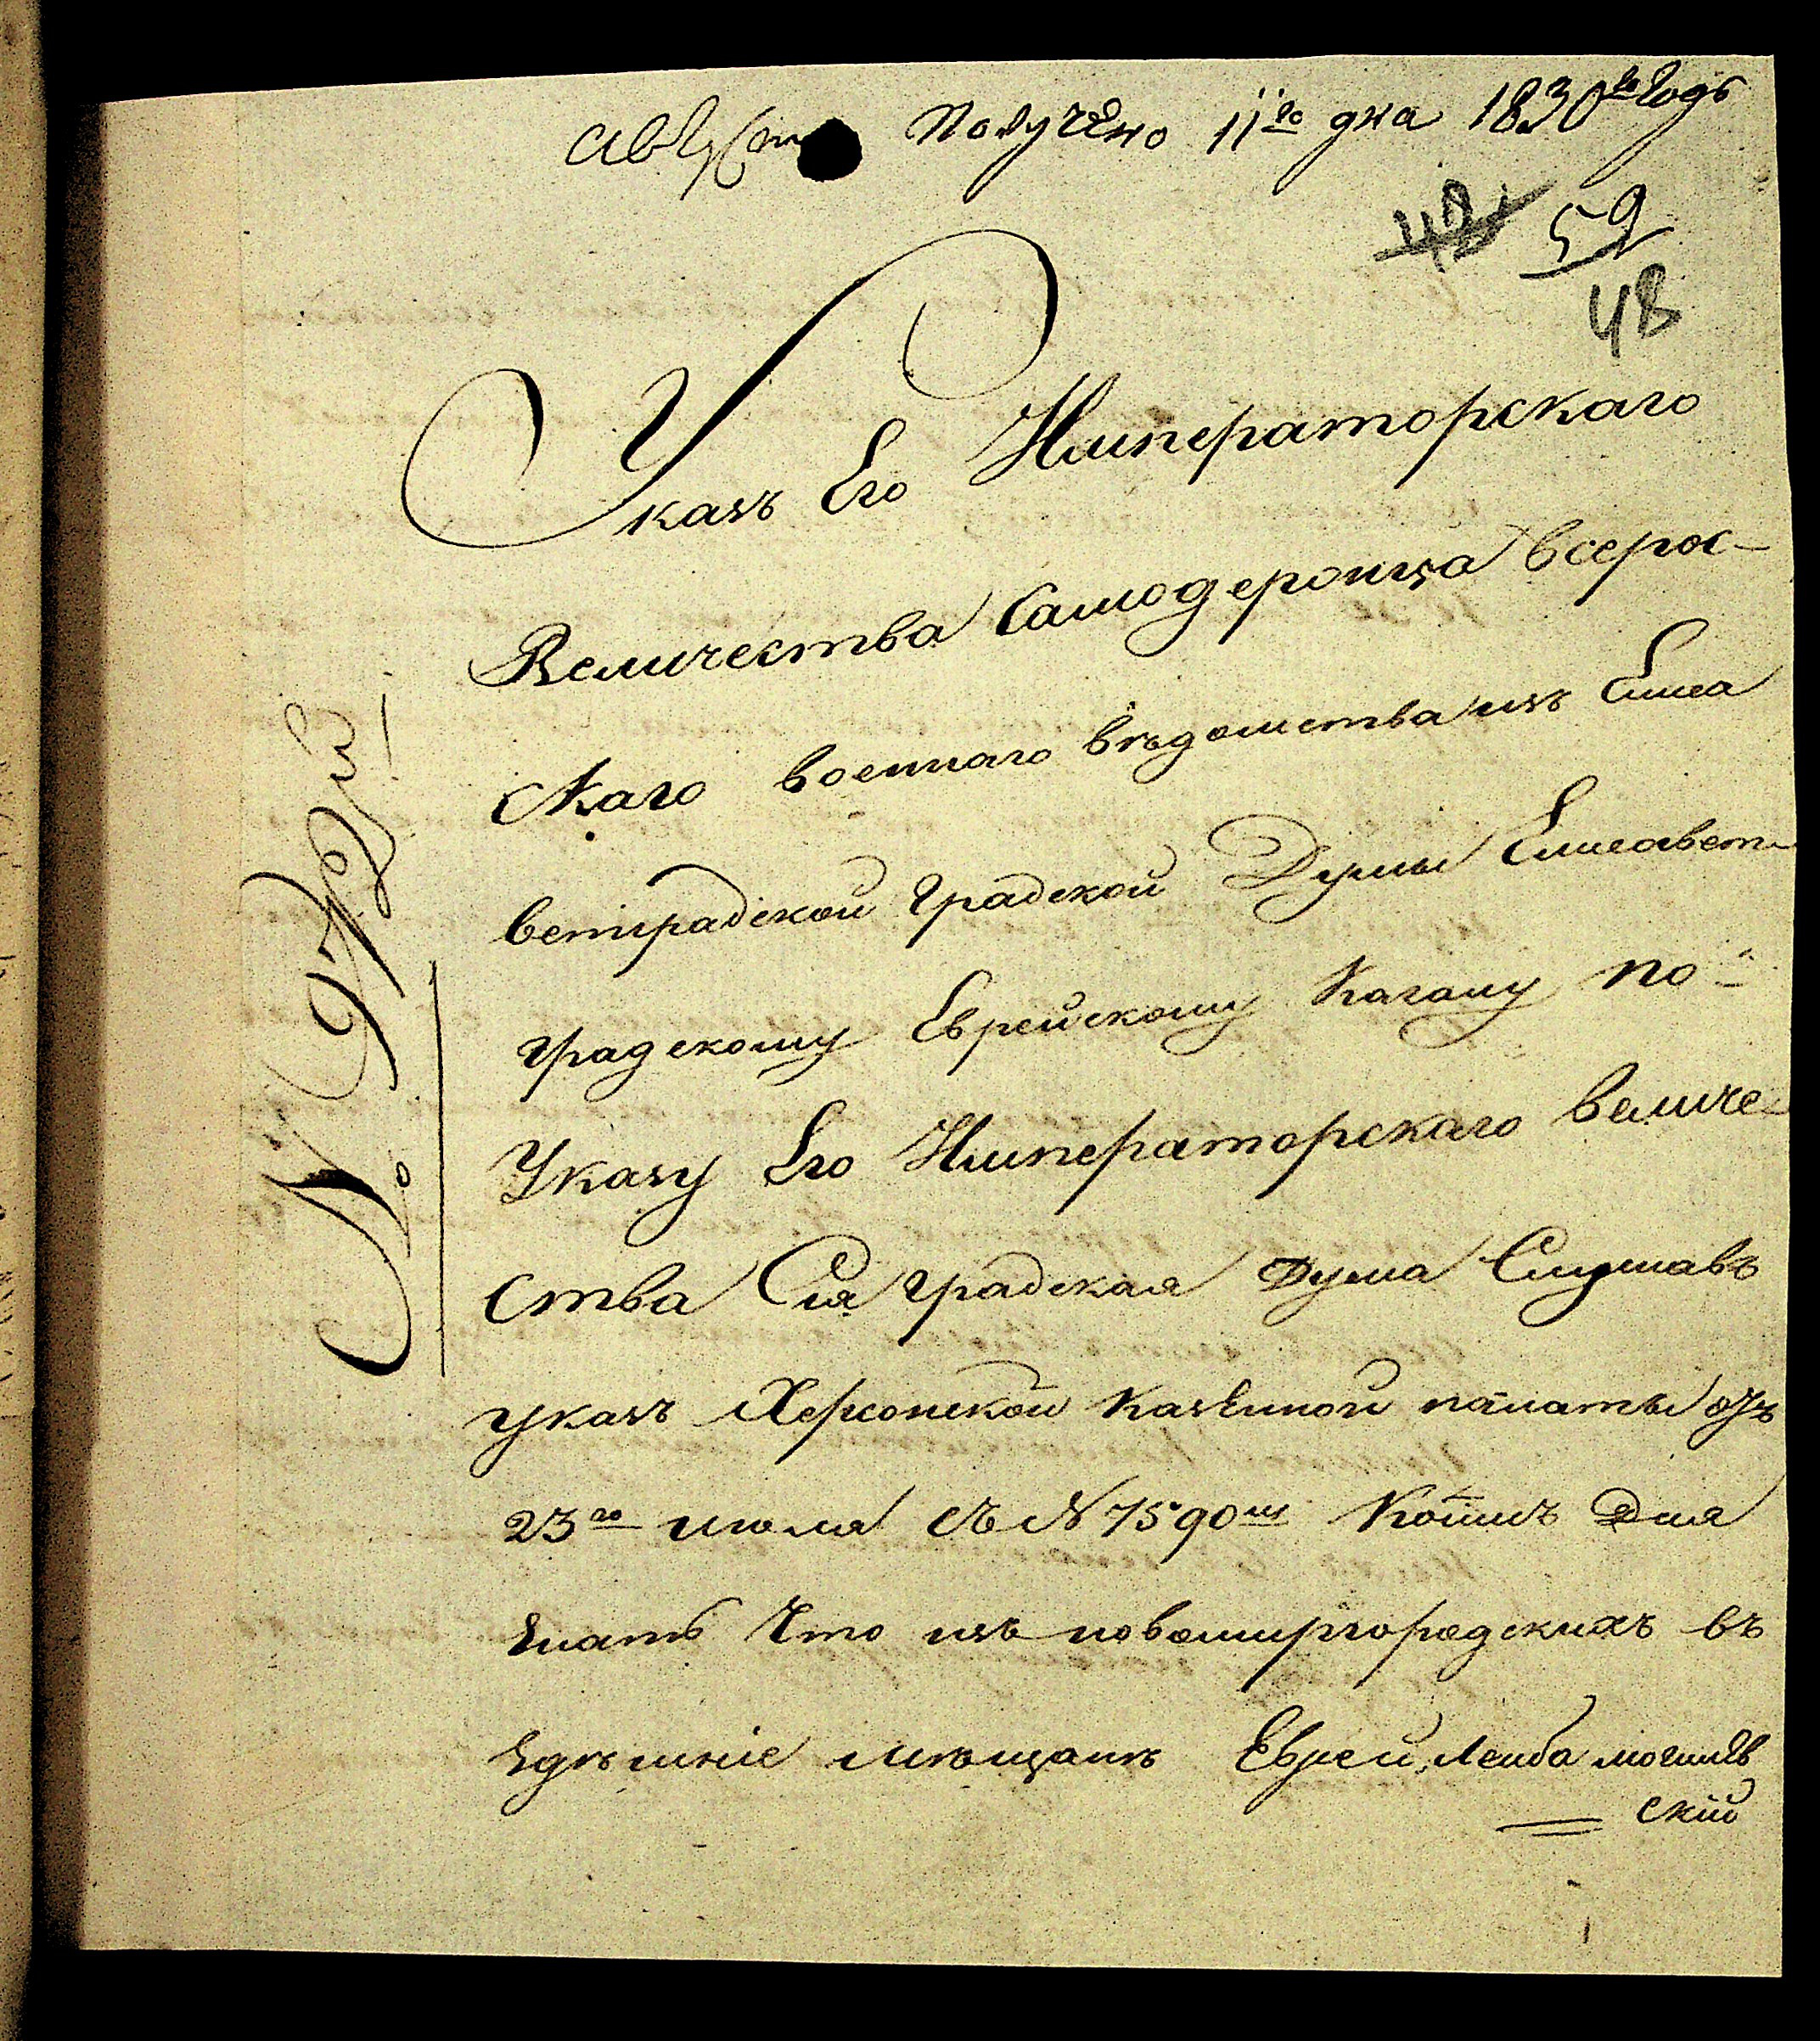 Августа Получено 11го дна 1830го Годь
52
48
Указъ Его Императорскаго
Величества Самодержица всерос-
скаго военнаго вѣдомства изъ Елиса
ветградской Градской Думы Елисавет-
градскому Еврейскому Кагалу по
Указу Его Императорскаго величе
ства Сия градская Дума Слушавъ
указъ Херсонской Казенной палаты отъ
23го июля съ № 7590м Коимъ Дала
знать Что изъ новомиргородскихъ въ
здѣшніе мѣщанъ Еврей Лейба могилев
скій
№